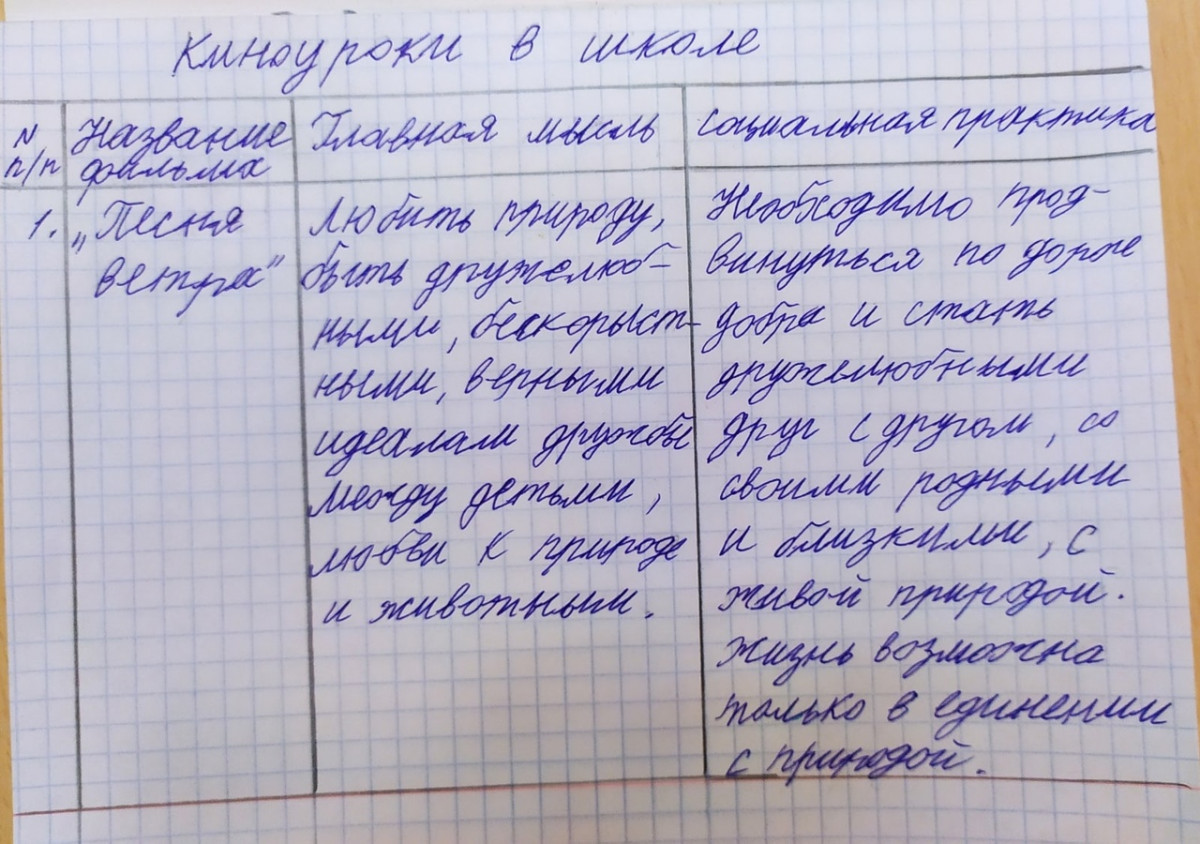 Киноуроки в школе
N п/п
Название фильма
Главная мысль
социальная практика
1.
„Песня
ветра"
Любить природу,
быть дружелюб-
ными, бескорыст-
ными, верными
идеалам дружбы
между детьми,
любви к природе
и животным.
Необходимо прод-
винуться по дороге
добра и стать
дружелюбными
друг с другом, со
своими родными
и близкими, с
живой природой.
Жизнь возможна
только в единении
с природой.